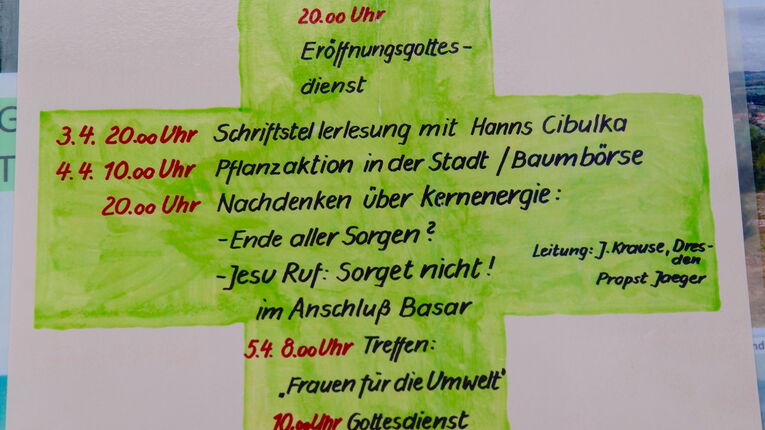 20.00 Uhr
Eröffnungsgottes-
dienst
3.4. 20.00 Uhr Schriftstellerlesung mit Hanns Cibulka
4.4. 10.00 Uhr Pflanzaktion in der Stadt / Baumbörse
20.00 Uhr Nachdenken über Kernenergie:
-Ende aller Sorgen?
-Jesu Ruf: Sorget nicht!
Leitung: J. Krause, Dres-
den
Propst Jaeger
im Anschluß Basar
5.4. 8.00 Uhr Treffen:
„Frauen für die Umwelt"
10.00 Uhr Gottesdienst